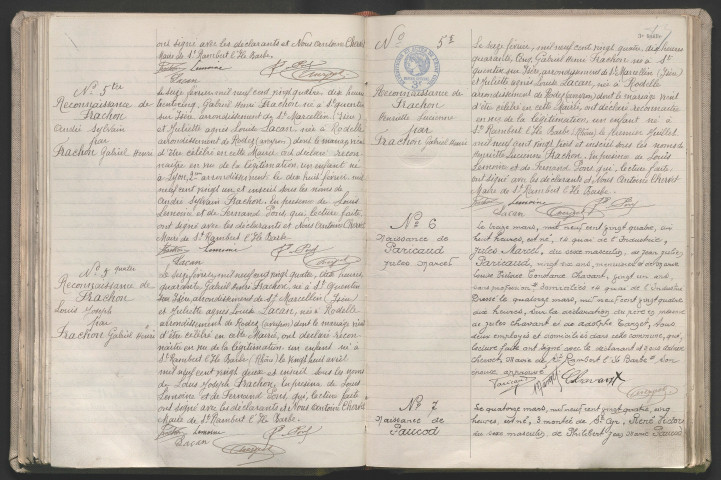 ont signé avec les déclarants et Nous Antoine Chervet
Maire de St Rambert l'Ile Barbe.
Lemoine
Lacan
No 5 ter
Reconnaissance de
Frachon
André Sylvain
par
Frachon Gabriel Henri
Le seize février mil neuf cent vingt quatre dix heures
Gabriel Henri Frachon, né à St Quentin
sur Isère arrondissement de St Marcellin (Isère)
et Juliette Agnès Louise Lacan, née à Rodelle
arrondissement de Rodez (aveyron) dont le mariage vient
d'être célébré en cette Mairie ont déclaré recon-
naître en vue de la légitimation un enfant né
à Lyon 2me arrondissement le dix huit février mil
neuf cent vingt un et inscrit sous les noms de
André Sylvain Frachon, En présence de Louis
Lemoine et de Fernand Pous qui, lecture faite
ont signé avec les déclarants et Nous Antoine Chervet
Maire de St Rambert l'Ile Barbe
Lemoine
Lacan
No 5 quater
Reconnaissance de
Frachon
Louis Joseph
par
Frachon Gabriel Henri
Le seize février mil neuf cent vingt quatre, dix heures
quarante, Gabriel Henri Frachon, né à St Quentin
sur Isère, arrondissement de St Marcellin (Isère)
et Juliette Agnès Louise Lacan, née à Rodelle
arrondissement de Rodez (aveyron) dont le mariage vient
d'être célébré en cette Mairie ont déclaré recon-
naître en vue de la légitimation un enfant né à
St Rambert l'Ile Barbe (Rhône) le vingt huit avril
mil neuf cent vingt deux et inscrit sous les noms
de Louis Joseph Frachon, En présence de Louis
Lemoine et de Fernand Pous, qui, lecture faite
ont signé avec les déclarants et Nous Antoine Chervet
Maire de St Rambert l'Ile Barbe.
Lemoine
Lacan
No 5
Reconnaissance de
Frachon
Henriette Suzanne
par
Frachon Gabriel Henri
Le seize février, mil neuf cent vingt quatre, dix heures
quarante cinq, Gabriel Henri Frachon né à St
Quentin sur Isère, arrondissement de St Marcellin (Isère)
et Juliette Agnès Louise Lacan, née à Rodelle
arrondissement de Rodez (aveyron), dont le mariage vient
d'être célébré en cette Mairie, ont déclaré reconnaître
en vue de la légitimation, un enfant né à
St Rambert l'Ile Barbe (Rhône) le premier Juillet
mil neuf cent vingt et inscrit sous les noms de
Henriette Suzanne Frachon, En présence de Louis
Lemoine et de Fernand Pous qui, lecture faite,
ont signé avec les déclarants et Nous Antoine Chervet
Maire de St Rambert l'Ile Barbe
Lemoine
Lacan
No 6
Naissance de
Paricaud
Jules Marcel
Le treize mars, mil neuf cent vingt quatre,
huit heures, est né, 10 quai de l'Industrie,
Jules Marcel, du sexe masculin, de Jean Jules
Paricaud, vingt
Constance Chavant, vingt un ans,
sans profession, domiciliés 10 quai de l'Industrie
Dressé le quatorze mars, mil neuf cent vingt quatre
heures, sur la déclaration du père en présence
de Jules Chavant et de Adolphe
employés et domiciliés dans cette commune, qui,
lecture faite ont signé avec le déclarant et Nous Antoine
Chervet, Maire de St Rambert l'Ile Barbe.
Chavant
No 7
Naissance de
Paucod
Le quatorze mars, mil neuf cent vingt quatre,
heures, est né, 3 montée de St Cyr, René
du sexe masculin, de Philibert Jean Marie Paucod